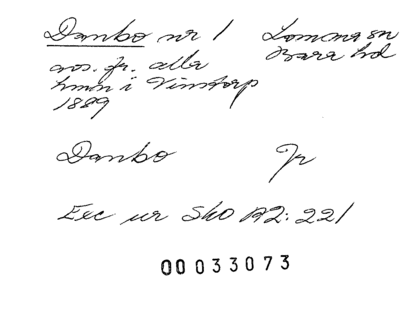 Danbo nr 1 Lomma sn
Bara hd
avs. fr. alla
hmn i Vinstorp
1889
Danbo Jr
Exc ur SkO A2: 221
00033073